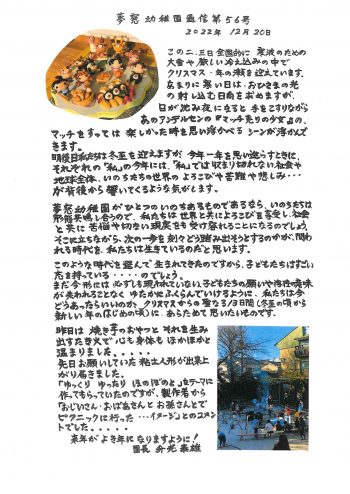 夢窓幼稚園通信第56号
2022年12月20日
この二、三日全国的に寒波のための
大雪や厳しい冷え込みの中で
クリスマス・年の瀬を迎えています。
あまりに寒い日は、おひさまの光
の射し込む日向を求めますが、
日が沈み夜になると手をこすりながら
あのアンデルセンの『マッチ売りの少女』の、
マッチをすっては楽しかった時を思い浮かべるシーンが浮かんで
きます。
明後日私たちは冬至を迎えますが今年一年を思い返らすときに、
それぞれの「私」の今年には、「私」では収まり切れない社会や
地球全体、いのちたちの世界のよろこびや苦難や悲しみ…
が背後から響いてくるような気がします。
夢窓幼稚園がひとつのいのちあるものであるなら、いのちたちは
形態共鳴し合うので、私たちは世界と共によろこびを享受し、社会
と共に苦悩や切ない現実をも受け入れることになるのでしょう。
そこに立ちながら、次の一歩を刻々とどう踏み出そうとするのかが、問わ
れる時代を、私たちは生きているのだと思います。
このような時代を選んで生まれてきたのですから、子どもたちはすごい
志を持っている・・・・のでしょう。
まだ今形には必ずしも現われていない、子どもたちの願いや存在の意味
が失われることなくゆたかにふくらんでいけるように、私たちは今
どうあったらいいのか、クリスマスからの聖なる13日間(冬至の頃から
新しい年のはじめの頃)に、あらためて思いたいものです。
昨日は焼き芋のおやつとそれを生み
出すたき火で心も身体もほかほかと
温まりました。・・・・
先日お願いしていた粘土人形が出来上
がり届きました。
「ゆっくり ゆったり ほのぼのと」をテーマに
作ってもらっていたのですが、製作者から
「おじいさん・おばあさんとお孫さんとで
ピクニックに行った …イメージ」とのコメント
でした。・・・・・
来年がよき年になりますように!
園長 升光泰雄